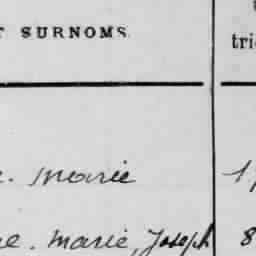 T SURNOMS
tri
e. Marie 1
ne. Marie, Joseph 8